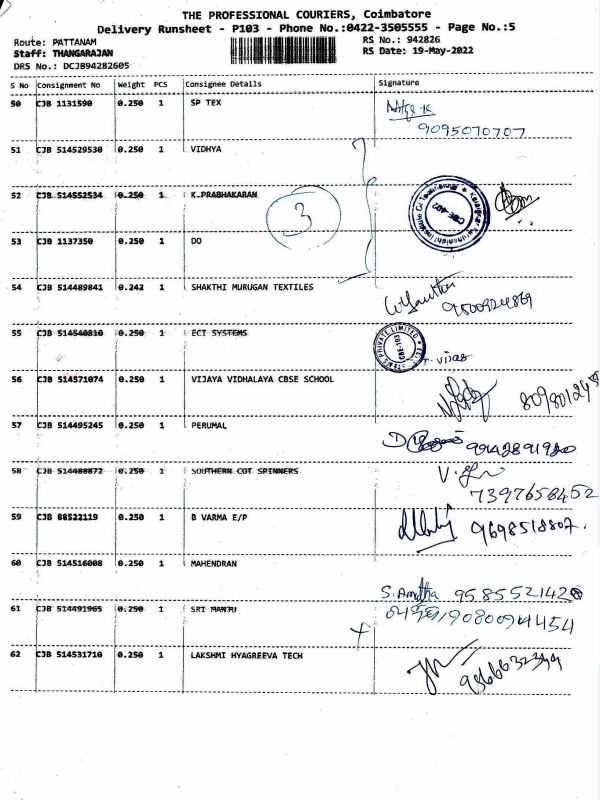 THE PROFESSIONAL COURIERS, Coimbatore
Delivery Runsheet - P103 - Phone No.:0422-3505555 - Page No.:5
Route: PATTANAM
RS No.: 942826
Staff: THANGARAJAN
RS Date: 19-May-2022
DRS No.: DCJB94282605
S No Consignment No Weight PCS Consignee Details Signature
50 CJB 1131590 0.250 1 SP TEX
9095070707
51 CJB 514529530 0.250 1 VIDHYA
52 CJB 514552534 0.250 1 K.PRABHAKARAN
3
CBE-402
53 CJB 1137350 0.250 1 DO
54 CJB 514489841 0.242 1 SHAKTHI MURUGAN TEXTILES
9500924869
55 CJB 514540810 0.250 1 ECI SYSTEMS
PRIVATE LIMITED
CBE-103
vijay
56 CJB 514571074 0.250 1 VIJAYA VIDHALAYA CBSE SCHOOL
57 CJB 514495245 0.250 1 PERUMAL
9942891920
58 CJB 514488872 0.250 1 SOUTHERN COT SPINNERS
7397658452
59 CJB 88522119 0.250 1 B VARMA E/P
9698518807.
60 CJB 514516008 0.250 1 MAHENDRAN
S. Amutha 9585521420
61 CJB 514491965 0.250 1 SRI MANJU
9080094454
62 CJB 514531710 0.250 1 LAKSHMI HYAGREEVA TECH